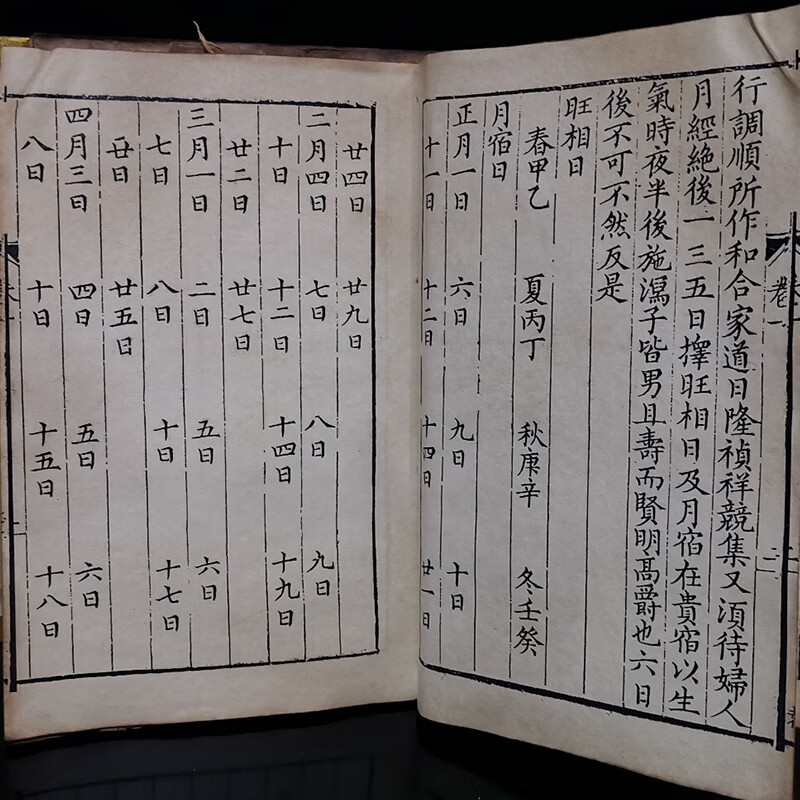 卷一
二
行調順所作和合家道日隆禎祥競集又湏待婦人
月經絶後一三五日擇旺相日及月宿在貴宿以生
氣時夜半後施瀉子皆男且壽而賢明高爵也六日
後不可不然反是
旺相日
春甲乙 夏丙丁 秋庚辛 冬壬癸
月宿日
正月一日 六日 九日 十日
十一日 十二日 十四日 廿一日
廿四日 廿九日
二月四日 七日 八日 九日
十日 十二日 十四日 十九日
廿二日 廿七日
三月一日 二日 五日 六日
七日 八日 十日 十七日
廿日 廿五日
四月三日 四日 五日 六日
八日 十日 十五日 十八日